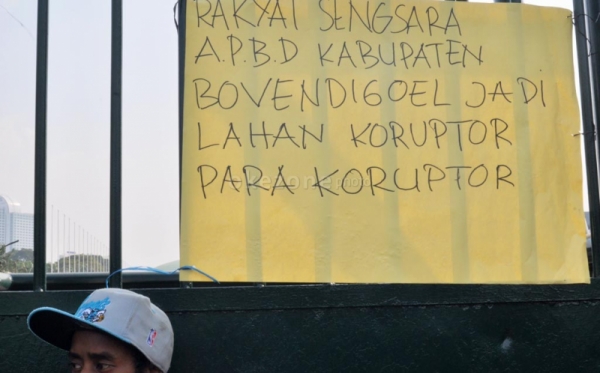 RAKYAT SENGSARA
A.P.B.D KABUPATEN
BOVENDIGOEL JADI
LAHAN KORUPTOR
PARA KORUPTOR
okezone